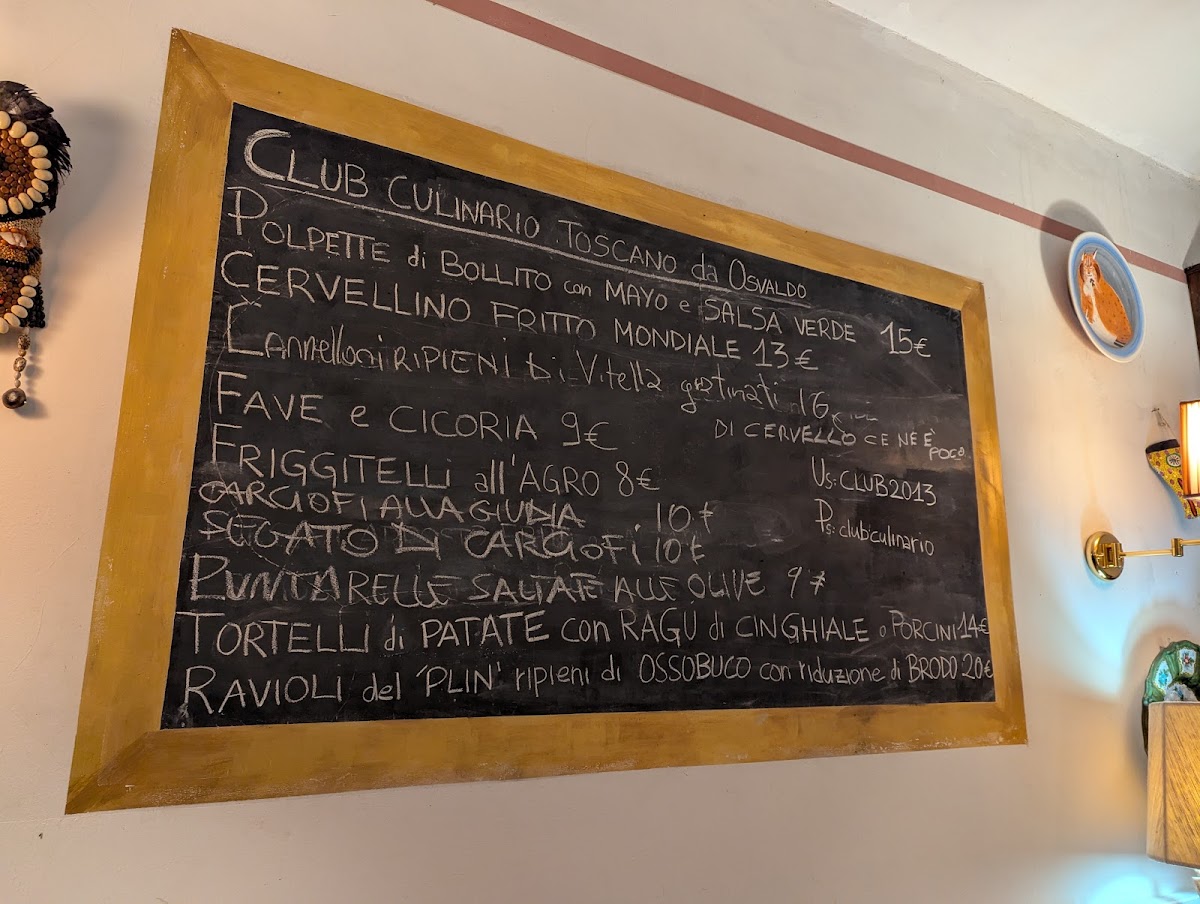 CLUB CULINARIO TOSCANO da OSVALDO
POLPETTE di BOLLITO con MAYO e SALSA VERDE 15€
CERVELLINO FRITTO MONDIALE 13€
CannelloniRIPIENI Di Vitella gratinati 16
DI CERVELLO CE NE È POCO
FAVE e CICORIA 9€
FRIGGITELLI all'AGRO 8€
Us: CLUB2013
CARCIOFI ALLA GIUDIA 10€
Ps: clubculinario
SEGATO DI CARCIOFI 10€
PUNTARELLE SALTATE ALLE OLIVE 9€
TORTELLI di PATATE con RAGU di CINGHIALE o PORCINI 14€
RAVIOLI del 'PLIN' ripieni di OSSOBUCO con riduzione di BRODO 20€